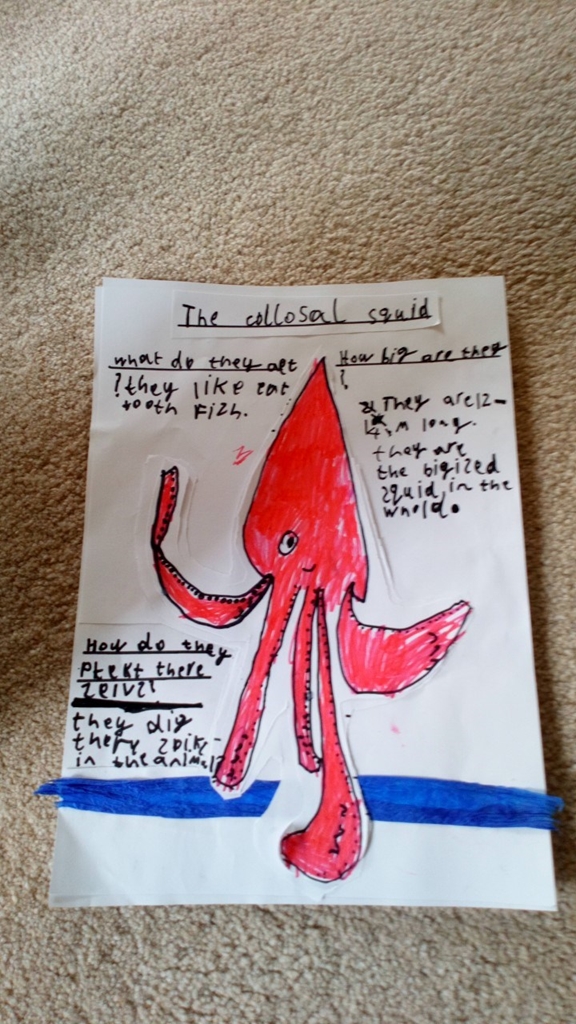 The collosal squid
what do they aet
? they like eat
tooth Fizh.
How big are they
?
They are 12-
14 m long.
they are
the bigized
squid in the
wrold.
How do they
ptekt there
zelvz?
they dig
there zpikz
in the animalz